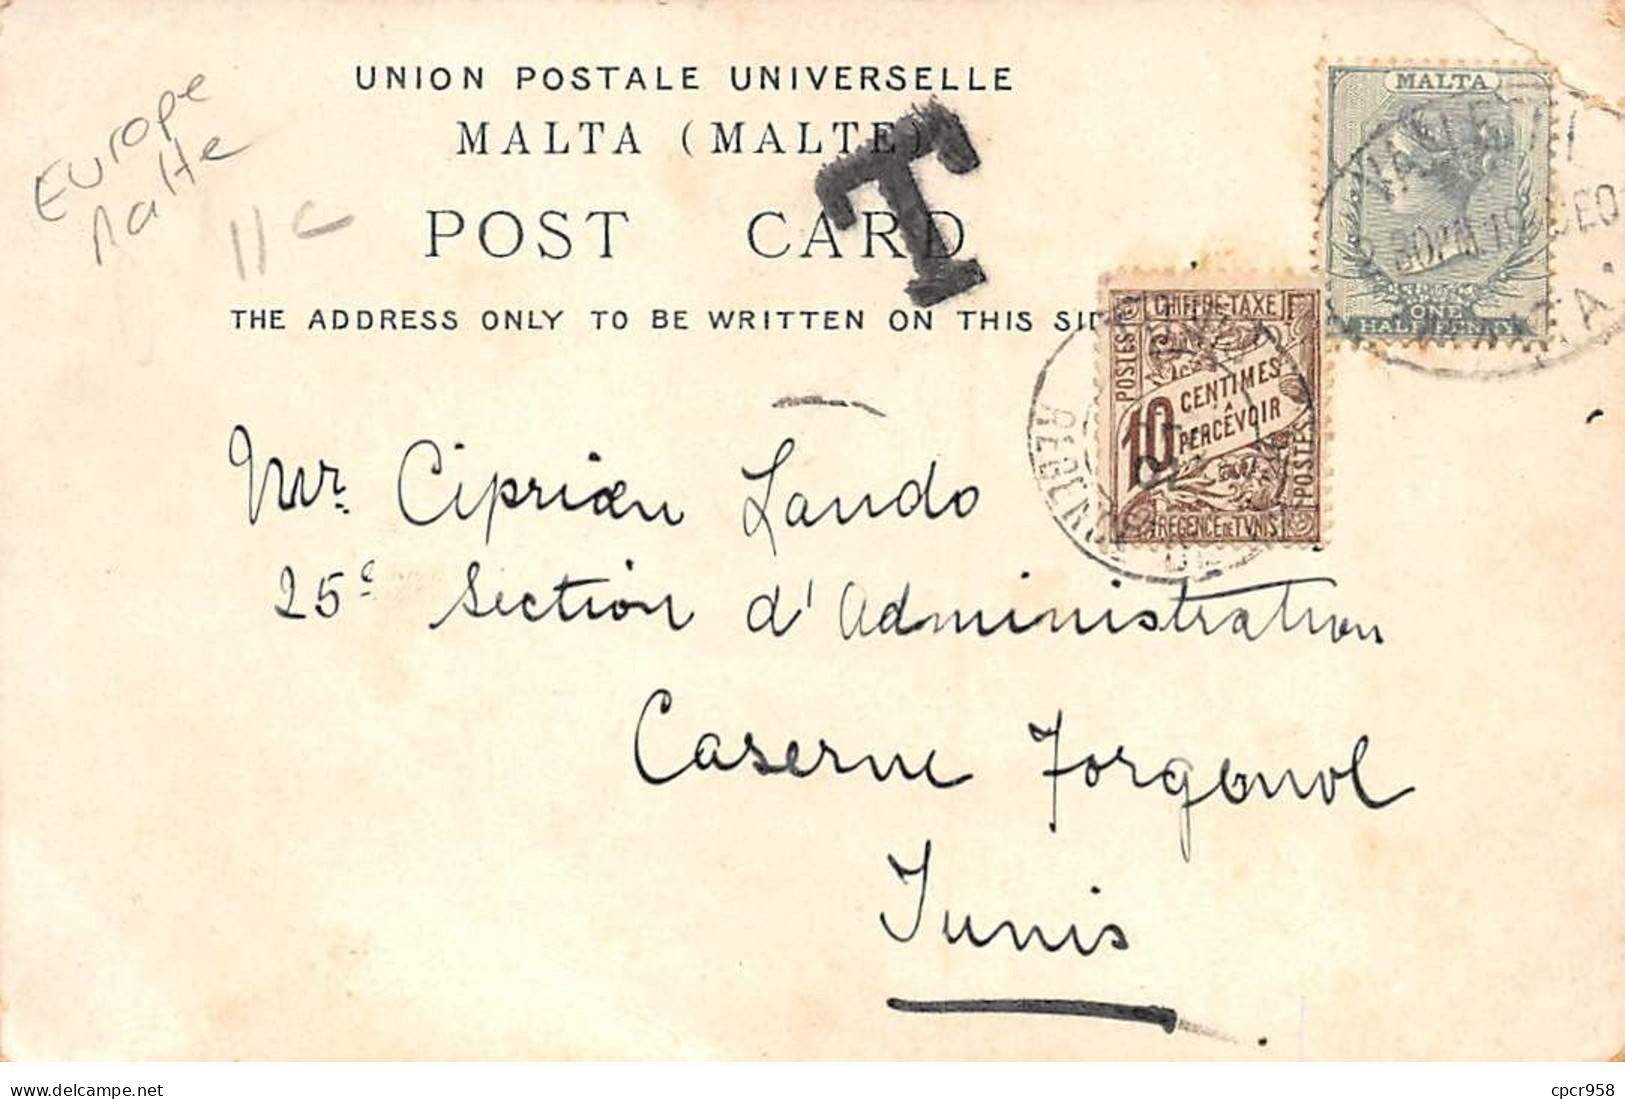 UNION POSTALE UNIVERSELLE
MALTA (MALTE)
POST CARD
THE ADDRESS ONLY TO BE WRITTEN ON THIS SIDE
Europe
Malte
11 c
T
MALTA
VALLETTA
30PM 19 DE 0
MALTA
ONE
HALF PENNY
CHIFFRE-TAXE
POSTES
10 CENTIMES
À
PERCEVOIR
POSTES
RÉGENCE DE TVNIS
REGENCE
Mr. Ciprien Lando
25e Section d'Administration
Caserne Forgemol
Tunis
delcampe.net
cpcr958